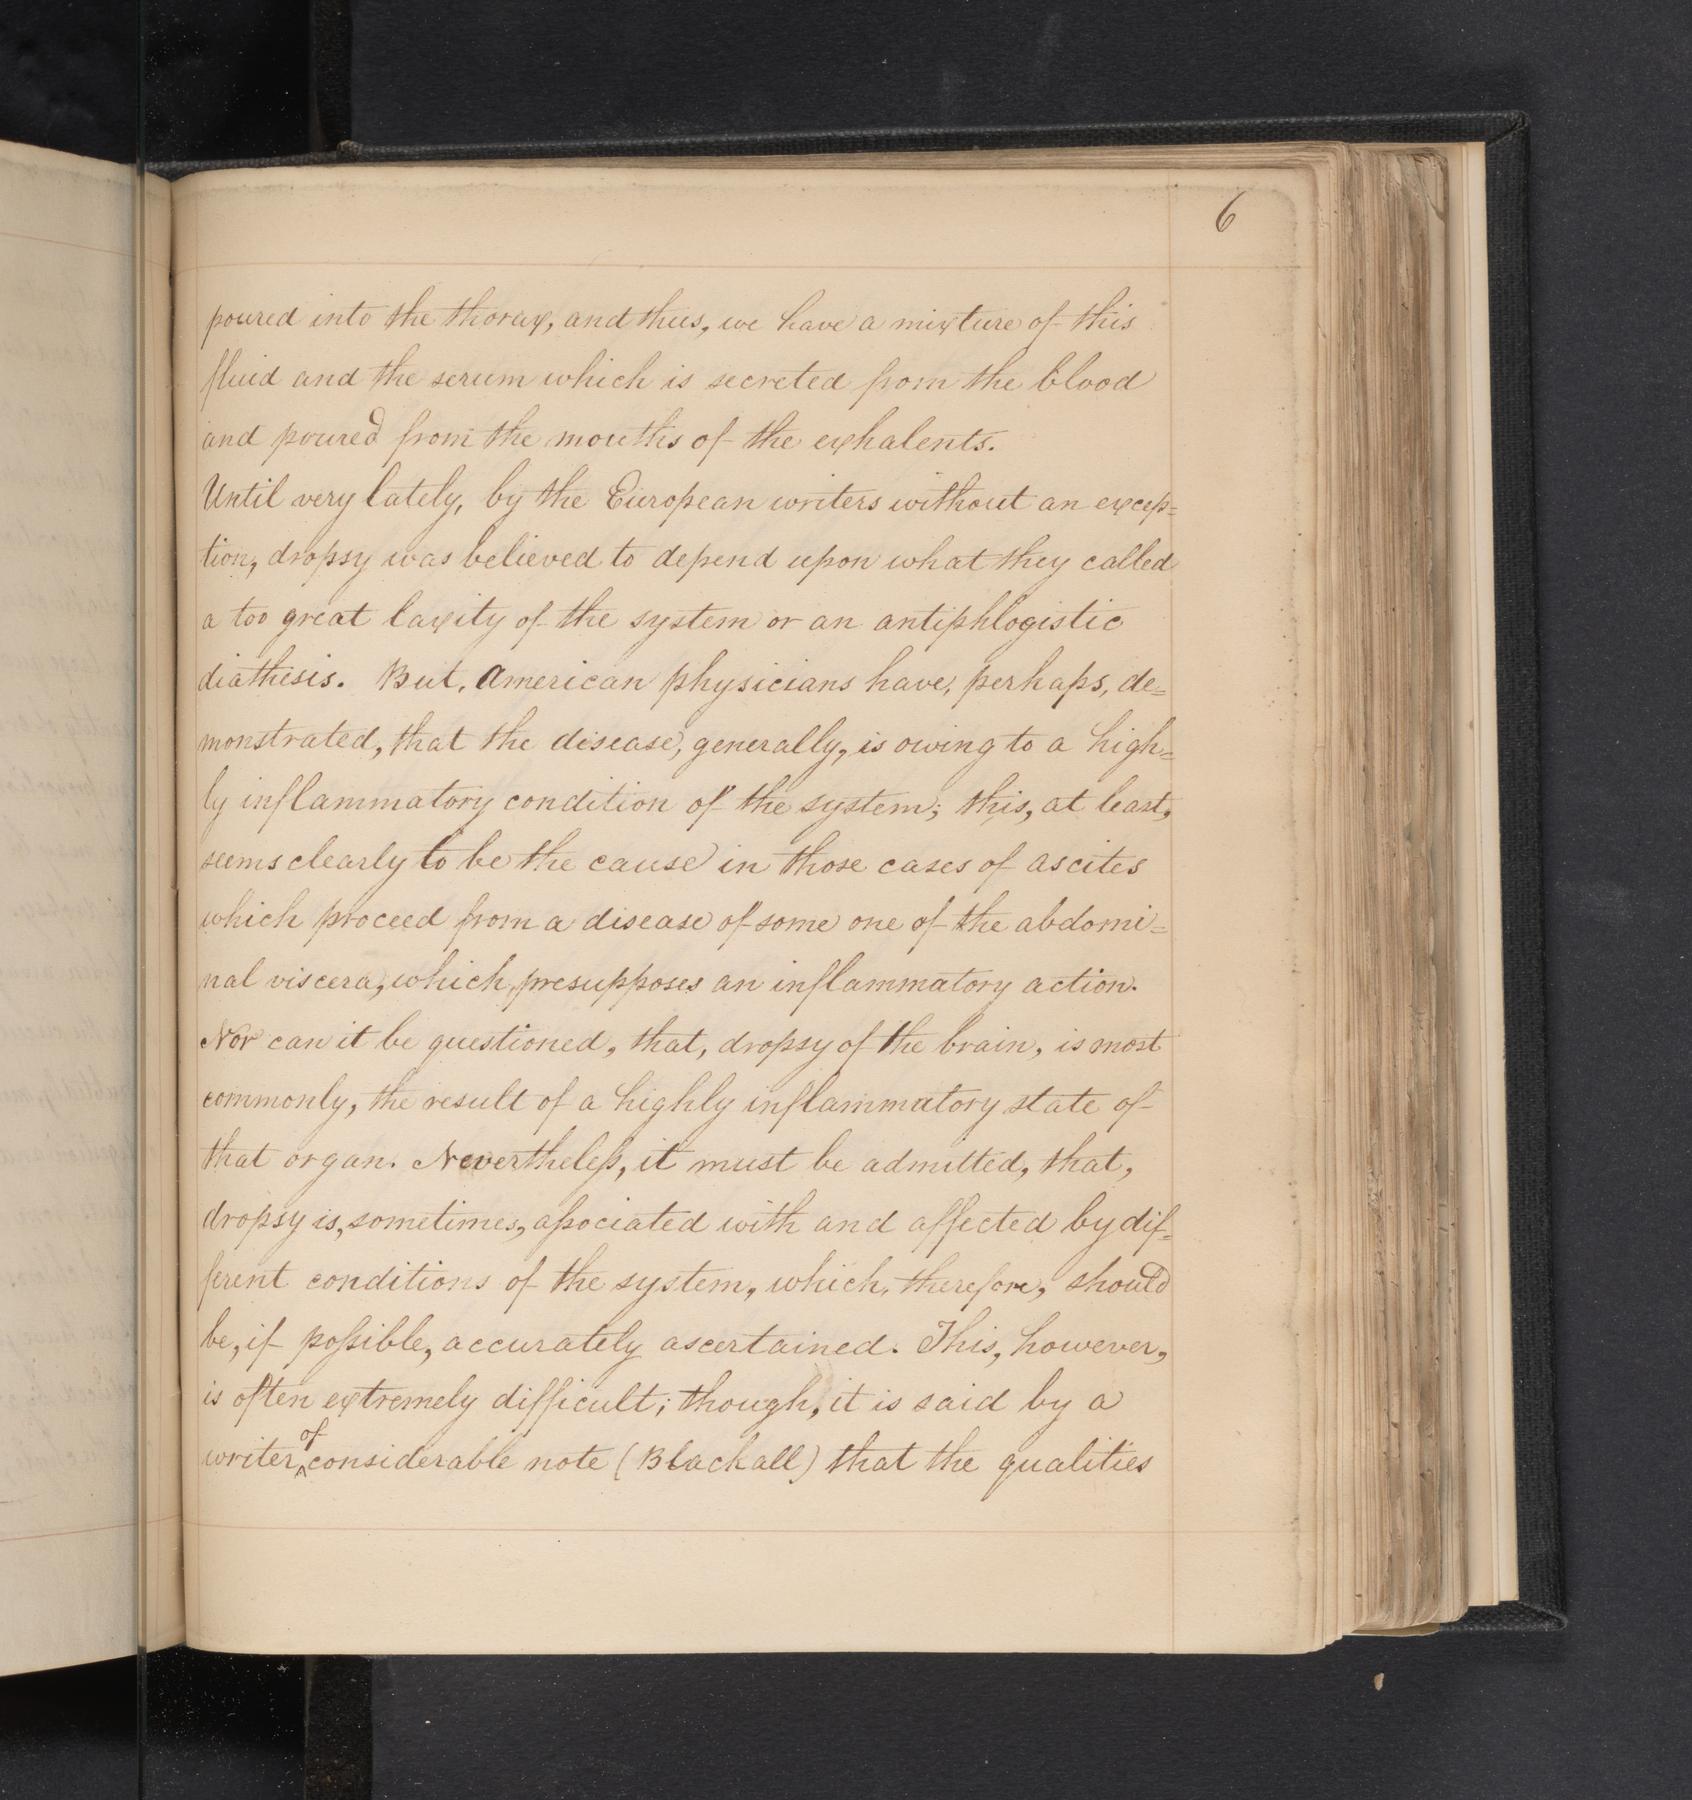 6
poured into the thorax, and thus, we have a mixture of this
fluid and the serum which is secreted from the blood
and poured from the mouths of the exhalents.
Until very lately, by the European writers without an excep=
tion, dropsy was believed to depend upon what they called
a too great laxity of the system or an antiphlogistic
diathesis. But, American physicians have, perhaps, de=
monstrated, that the disease, generally, is owing to a high=
ly inflammatory condition of the system; this, at least,
seems clearly to be the cause in those cases of ascites
which proceed from a disease of some one of the abdomi=
nal viscera, which, presupposes an inflammatory action.
Nor can it be questioned, that, dropsy of the brain, is most
commonly, the result of a highly inflammatory state of
that organ. Nevertheleſs, it must be admitted, that,
dropsy is, sometimes, aſsociated with and affected by dif=
ferent conditions of the system, which, therefore, should
be, if poſsible, accurately ascertained. This, however,
is often extremely difficult; though, it is said by a
writer, of considerable note (Blackall) that the qualities